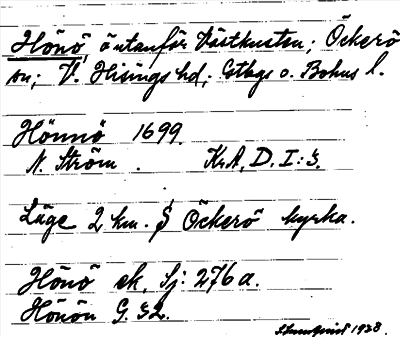 Hönö, ö utanför Västkusten; Öckerö
sn; V. Hisings hd; Gtbgs o. Bohus l.
Hönnö 1699.
N. Ström. Kr.A, D. I: 3.
Läge 2 km. S Öckerö kyrka.
Hönö ek, Sj: 276a.
Hönön G. 32.
1928.